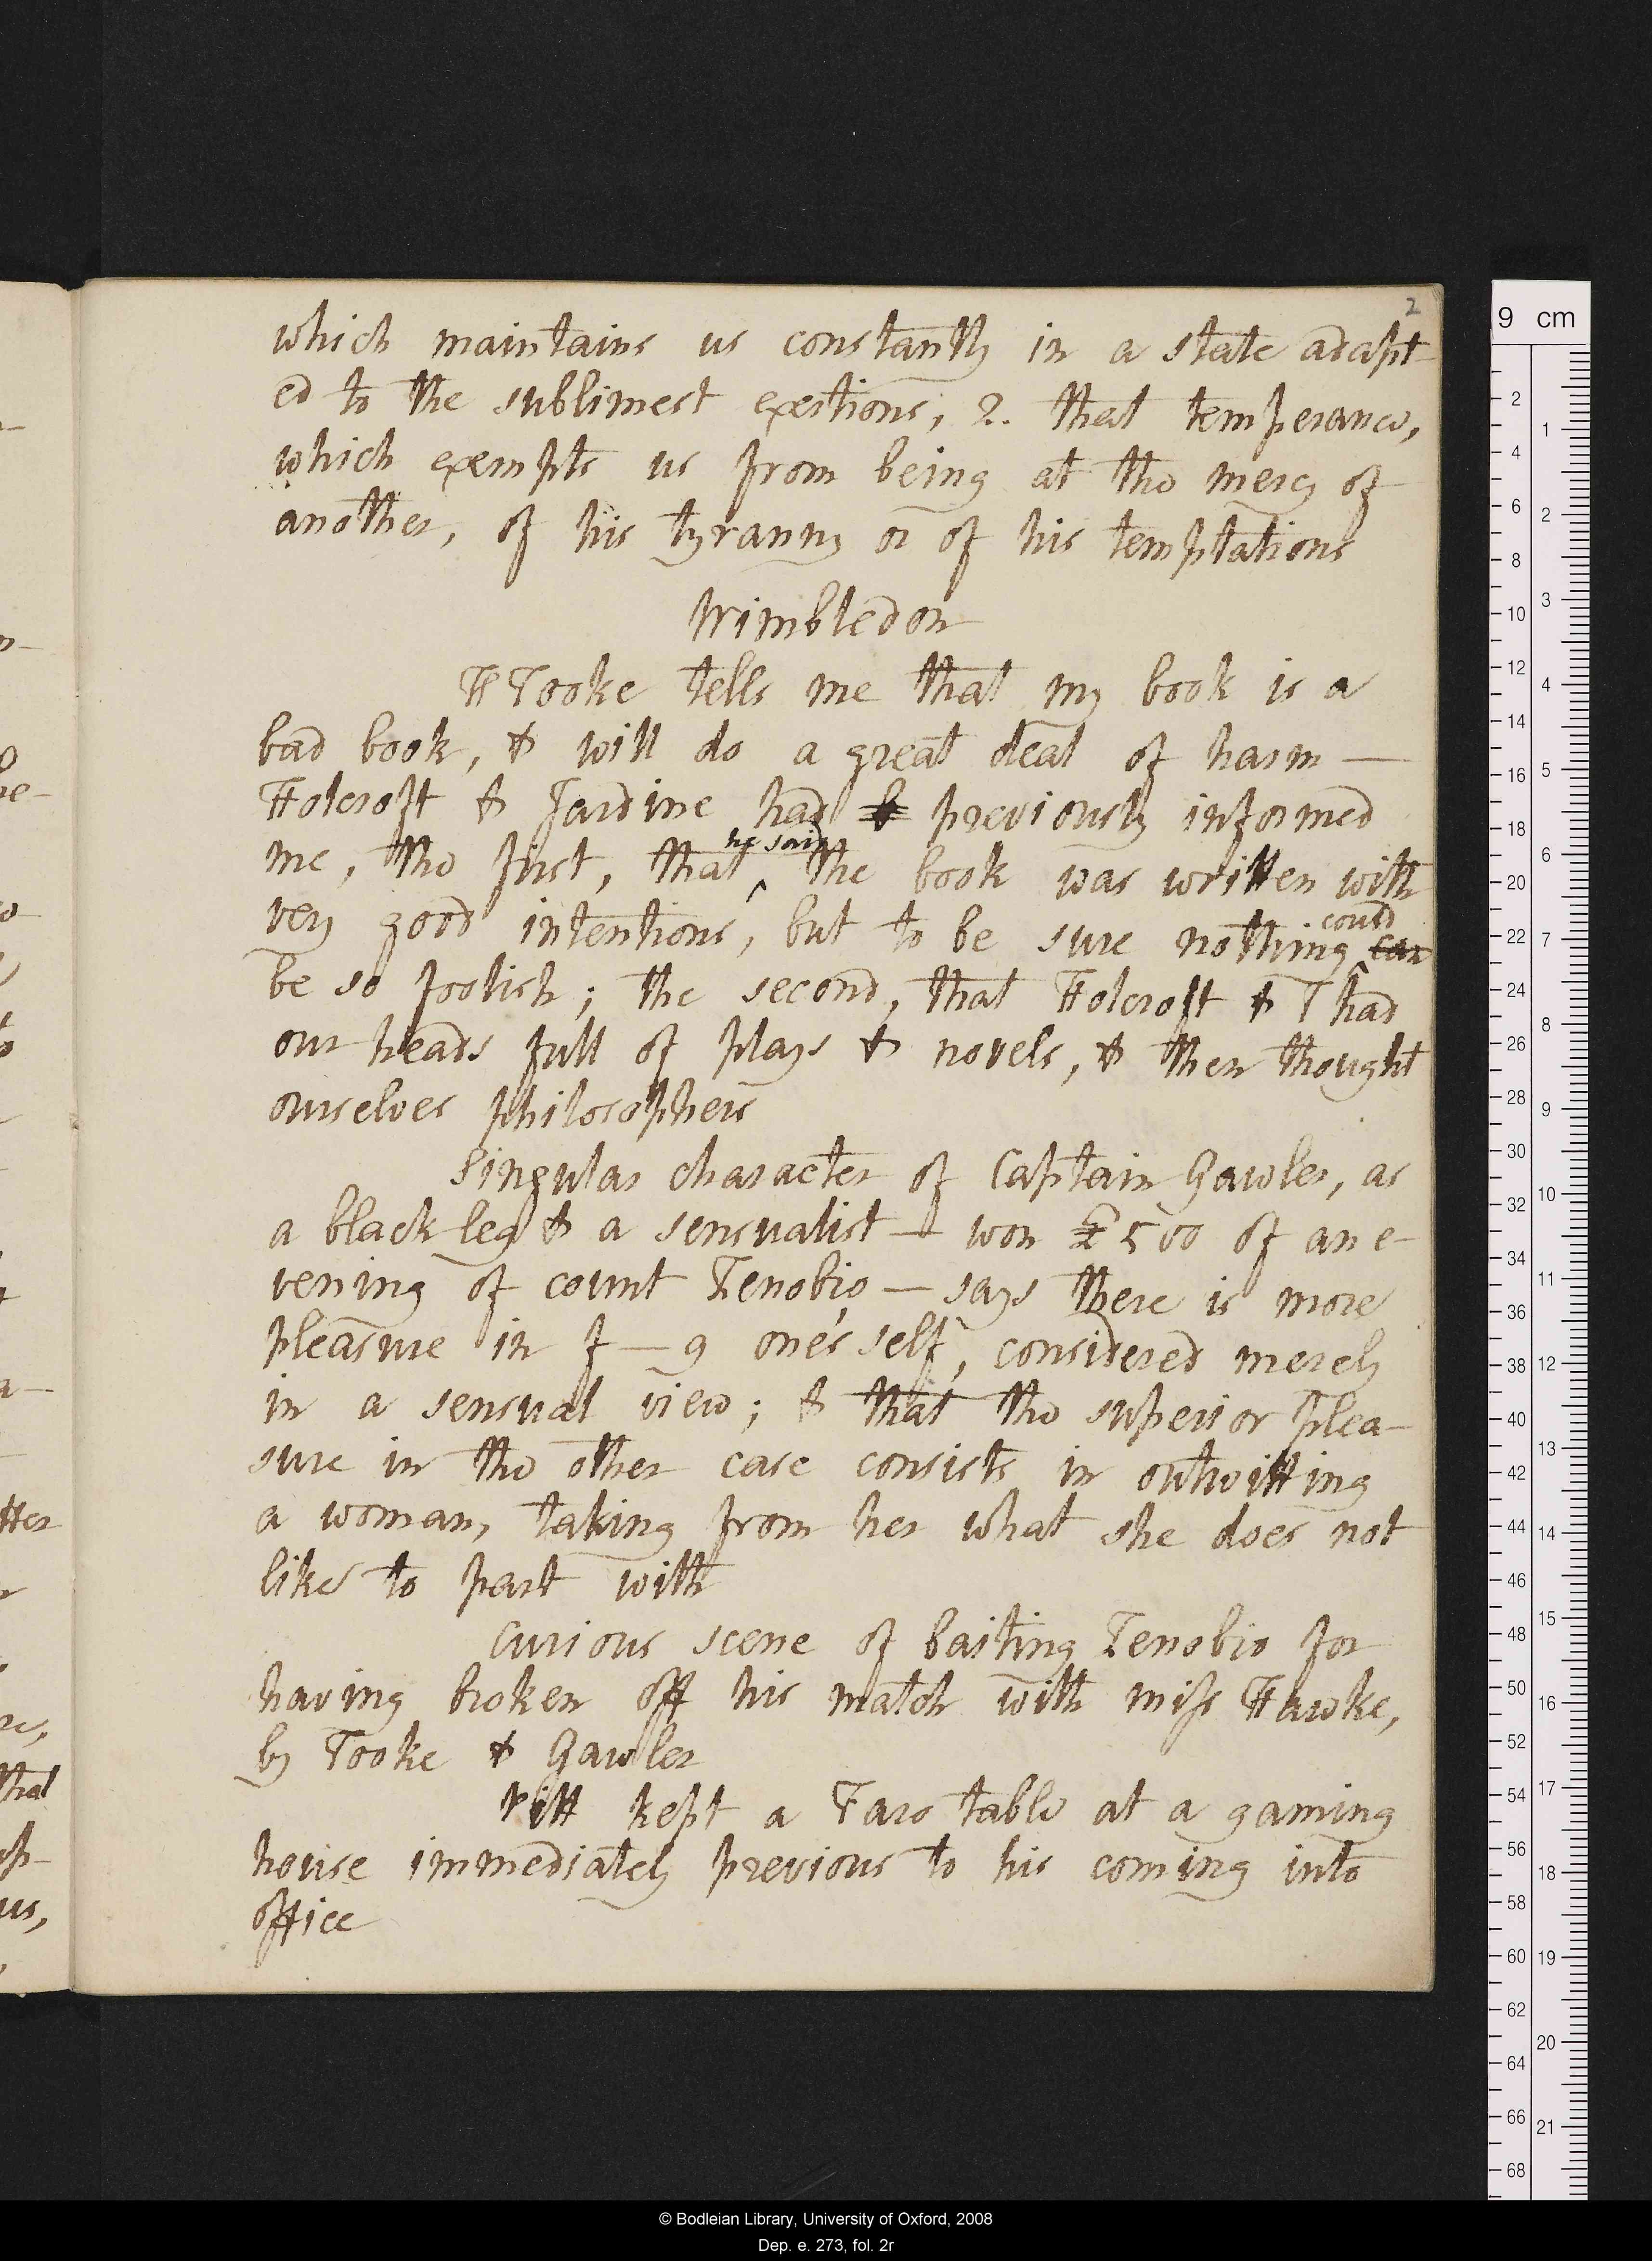 2
which maintains us constantly in a state adapt-
ed to the sublimest exertions; 2. that temperance,
which exempts us from being at the mercy of
another, of his tyranny or of his temptations
Wimbledon
H Tooke tells me that my book is a
bad book, & will do a great deal of harm —
Holcroft & Jardine had previously informed
me, the first, that he said the book was written with
very good intentions, but to be sure nothing could can
be so foolish; the second, that Holcroft & I had
our heads full of plays & novels, & then thought
ourselves philosophers
Singular character of Captain Gawler, as
a black leg & a sensualist — won £500 of an e-
vening of count Zenobio — says there is more
pleasure in f—g one's self, considered merely
in a sensual view; & that the superior plea-
sure in the other case consists in outwitting
a woman, taking from her what she does not
like to part with
Curious scene of baiting Zenobio for
having broken off his match with miss Hawke,
by Tooke & Gawler
Pitt kept a Faro table at a gaming
house immediately previous to his coming into
office
9 cm
2 4 6 8 10 12 14 16 18 20 22 24 26 28 30 32 34 36 38 40 42 44 46 48 50 52 54 56 58 60 62 64 66 68
1 2 3 4 5 6 7 8 9 10 11 12 13 14 15 16 17 18 19 20 21
© Bodleian Library, University of Oxford, 2008
Dep. e. 273, fol. 2r